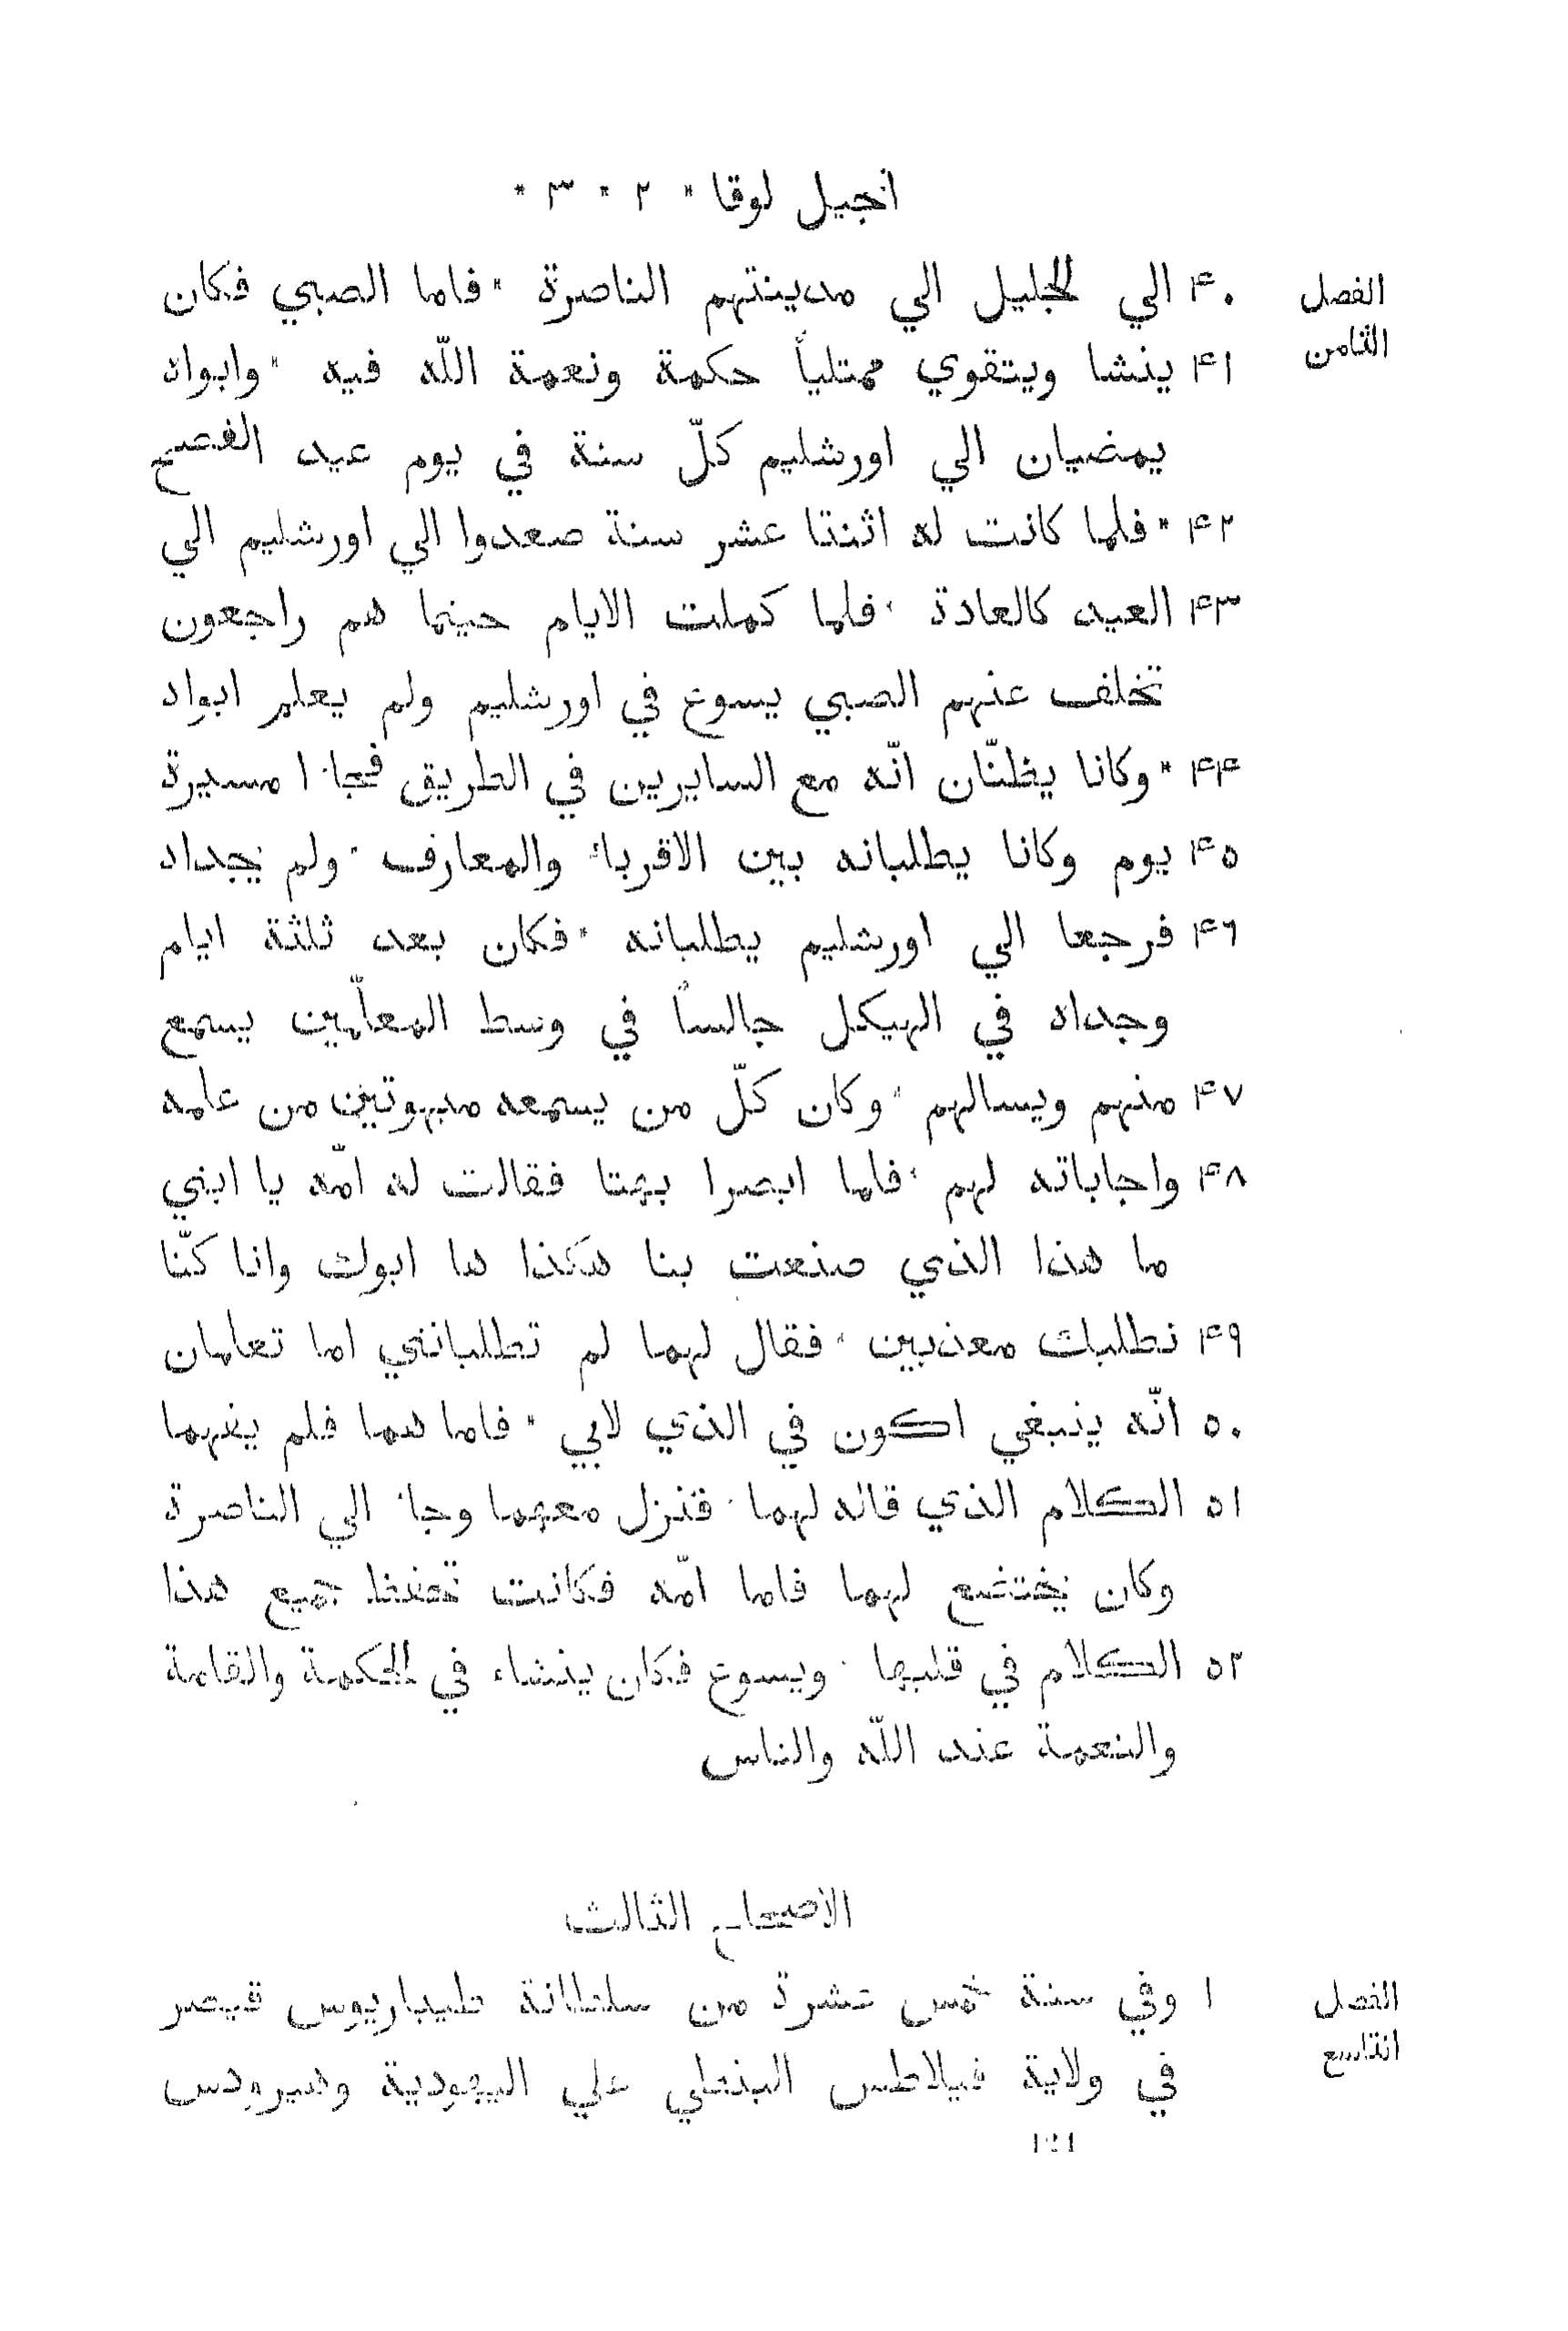 انجيل لوقا * ٢ * ٣ *
الفصل
الثامن
٤٠ الي الجليل الي مدينتهم الناصرة * فاما الصبي فكان
٤١ ينشا ويتقوي ممتلياً حكمة ونعمة اللّه فيه * وابواه
يمضيان الي اورشليم كلّ سنة في يوم عيد الفصح
٤٢ * فلما كانت له اثنتا عشر سنة صعدوا الي اورشليم الي
٤٣ العيد كالعادة * فلما كملت الايام حينما هم راجعون
تخلف عنهم الصبي يسوع في اورشليم ولم يعلم ابواه
٤٤ * وكانا يظنّان انّه مع السايرين في الطريق فجاءا مسيرة
٤٥ يوم وكانا يطلبانه بين الاقرباء والمعارف * ولم يجداه
٤٦ فرجعا الي اورشليم يطلبانه * فكان بعد ثلثة ايام
وجداه في الهيكل جالساً في وسط المعلّمين يسمع
٤٧ منهم ويسالهم * وكان كلّ من يسمعه مبهوتين من علمه
٤٨ واجاباته لهم * فلما ابصرا بهتا فقالت له امّه يا ابني
ما هذا الذي صنعت بنا هكذا ها ابوك وانا كنّا
٤٩ نطلبك معذبين * فقال لهما لم تطلبانني اما تعلمان
٥٠ انّه ينبغي اكون في الذي لابي * فاما هما فلم يفهما
٥١ الكلام الذي قاله لهما * فنزل معهما وجاء الي الناصرة
وكان يختضع لهما فاما امّه فكانت تحفظ جميع هذا
٥٢ الكلام في قلبها * ويسوع فكان ينشاء في الحكمة والقامة
والنعمة عند اللّه والناس
الاصحاح الثالث
الفصل
التاسع
١ وفي سنة خمس عشرة من سلطانة طيباريوس قيصر
في ولاية فيلاطس البنطي علي اليهودية وهيرودس